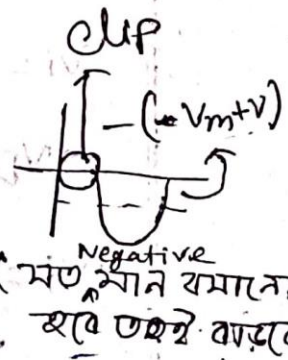 clip
-(-Vm+V)
Negative
মত মান বসানো
হবে ততই বাড়বে